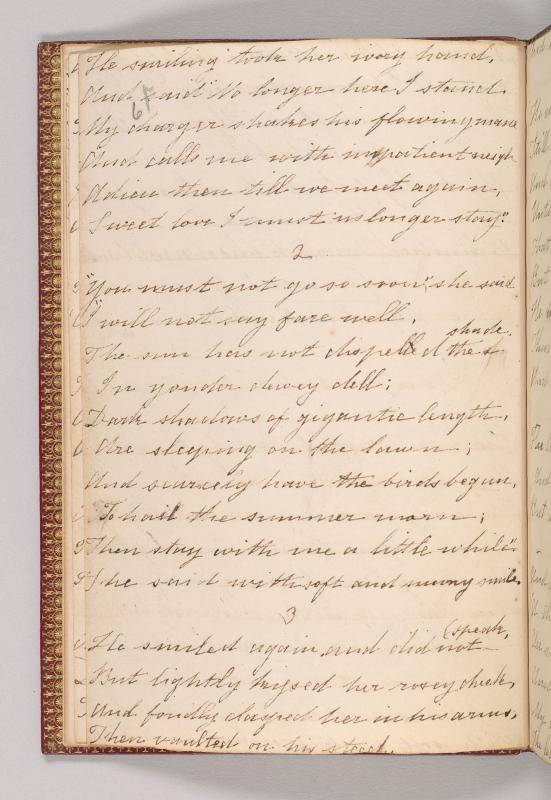 He smiling took her ivory hand,
And said "No longer here I stand.
67
My charger shakes his flowing mane
And calls me with impatient neigh
Adieu then till we meet again,
Sweet love I must no longer stay."
2
"You must not go so soon", she said
"I will not say fare well,
The sun has not dispelled the shade.
In yonder dewy dell;
Dark shadows of gigantic length,
Are sleeping on the lawn;
And scarcely have the birds begun,
To hail the summer morn;
Then stay with me a little while".
She said with soft and sunny smile.
3
He smiled again, and did not (speak,
But lightly kissed her rosey cheek,
And fondly clasped her in his arms,
Then vaulted on his steed.